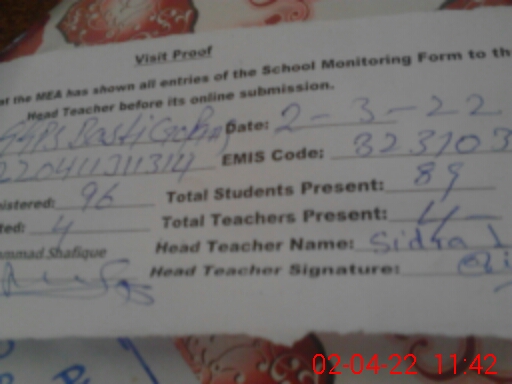 Visit Proof
at the MEA has shown all entries of the School Monitoring Form to th
Head Teacher before its online submission.
Date: 2-3-22
EMIS Code: 323103
istered: 96 Total Students Present: 89
ted: 4 Total Teachers Present: 4
ammad Shafique Head Teacher Name: Sidra
Head Teacher Signature:
02-04-22 11:42